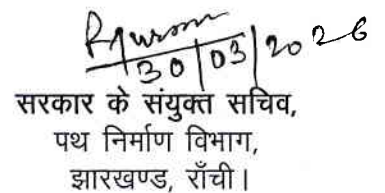 30/03/2026
सरकार के संयुक्त सचिव,
पथ निर्माण विभाग,
झारखण्ड, राँची।